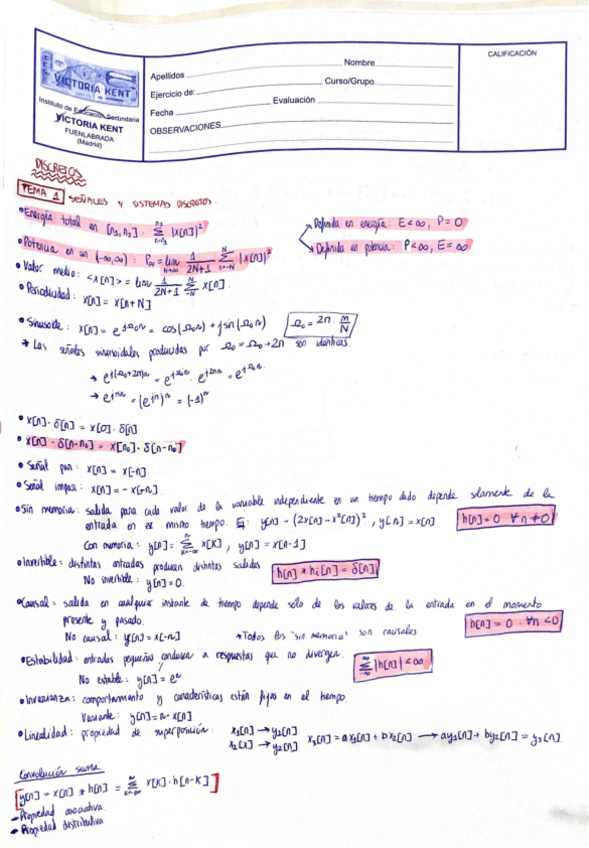 VICTORIA KENT
Instituto de Educación Secundaria
VICTORIA KENT
FUENLABRADA
(Madrid)
Apellidos
Nombre
Ejercicio de:
Curso/Grupo
Fecha
Evaluación
OBSERVACIONES
CALIFICACIÓN
DISCRETOS
TEMA 1 SEÑALES Y SISTEMAS DISCRETOS.
• Energía total en [n₁, n₂]: Σ_{n=n₁}^{n₂} |x[n]|²
→ Definida en energía: E<∞, P=0
• Potencia en un (-∞,∞): P∞ = lim_{N→∞} 1/(2N+1) Σ_{n=-N}^{N} |x[n]|²
→ Definida en potencia: P<∞, E=∞
• Valor medio: <x[n]> = lim 1/(2N+1) Σ_{-N}^{N} x[n].
• Periodicidad: x[n] = x[n+N]
• Sinusoide: x[n] = e^{jΩ₀n} = cos(Ω₀n) + j sin(Ω₀n) Ω₀ = 2π · m/N
→ Las señales sinusoidales producidas por Ω₀ = Ω₀+2π son idénticas.
→ e^{j(Ω₀+2π)n} = e^{jΩ₀n} · e^{j2πn} = e^{jΩ₀n}
→ e^{jπn} = (e^{jπ})ⁿ = (-1)ⁿ
• x[n] · δ[n] = x[0] · δ[n]
• x[n] · δ[n-n₀] = x[n₀] · δ[n-n₀]
• Señal par: x[n] = x[-n]
• Señal impar: x[n] = -x[-n].
• Sin memoria: salida para cada valor de la variable independiente en un tiempo dado depende solamente de la
entrada en ese mismo tiempo. Ej: y[n] = (2x[n] - x²[n])², y[n] = x[n] h[n]=0 ∀n≠0
Con memoria: y[n] = Σ_{k=-∞}^{n} x[k], y[n] = x[n-1]
• Invertible: distintas entradas producen distintas salidas h[n] * hᵢ[n] = δ[n]
No invertible: y[n] = 0.
• Causal: salida en cualquier instante de tiempo depende sólo de los valores de la entrada en el momento
presente y pasado. h[n] = 0 ∀n<0
No causal: y[n] = x[-n] *Todos los "sin memoria" son causales
• Estabilidad: entradas pequeñas conducen a respuestas que no divergen. Σ_{-∞}^{∞} |h[n]| < ∞
No estable: y[n] = eⁿ
• Invarianza: comportamiento y características están fijas en el tiempo.
Variante: y[n] = n · x[n]
• Linealidad: propiedad de superposición: x₁[n] → y₁[n]
x₂[n] → y₂[n]
x₃[n] = ax₁[n] + bx₂[n] → ay₁[n] + by₂[n] = y₃[n].
Convolución suma
y[n] = x[n] * h[n] = Σ_{k=-∞}^{∞} x[k] · h[n-k]
- Propiedad asociativa.
- Propiedad distributiva